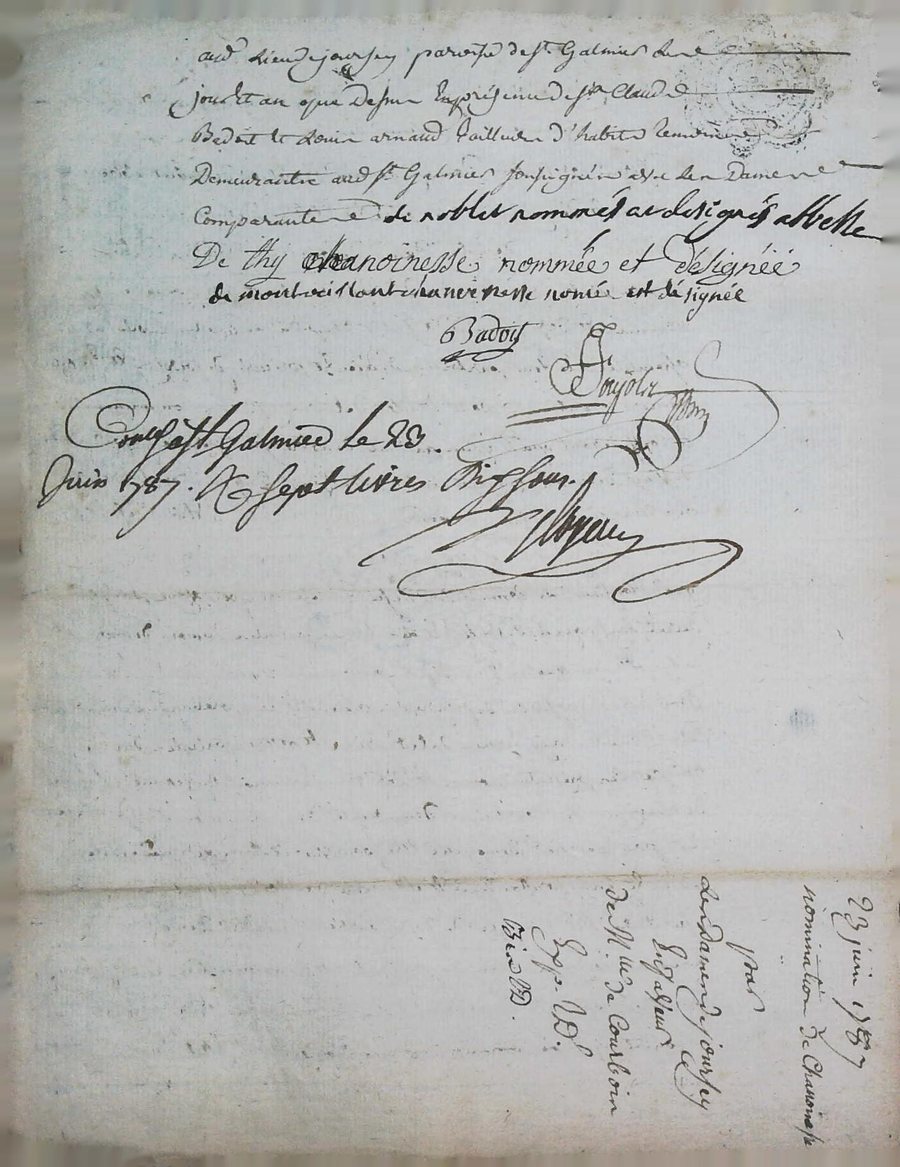 aud. Lieu de joursey paroisse de St. Galmier le
jour et an que dessus En présence de Sr. Claude
Badoit et Louis arnaud Tailleur d'habits
Demeurants aud. St. Galmier soussignés avec les Dames
Comparantes de nobles nommés et designés abbesse
De thy chanoinesse nommée et désignéé
de montroissant chanoinesse nomée est désignée
Badoit
Contlé à St. Galmier le 23
Juin 1787. R sept livres dix sous.
23 juin 1787
nomination de Chanoinesse
par
Les Dames de joursey
En faveur
de Mlle de Courboin
Exp.